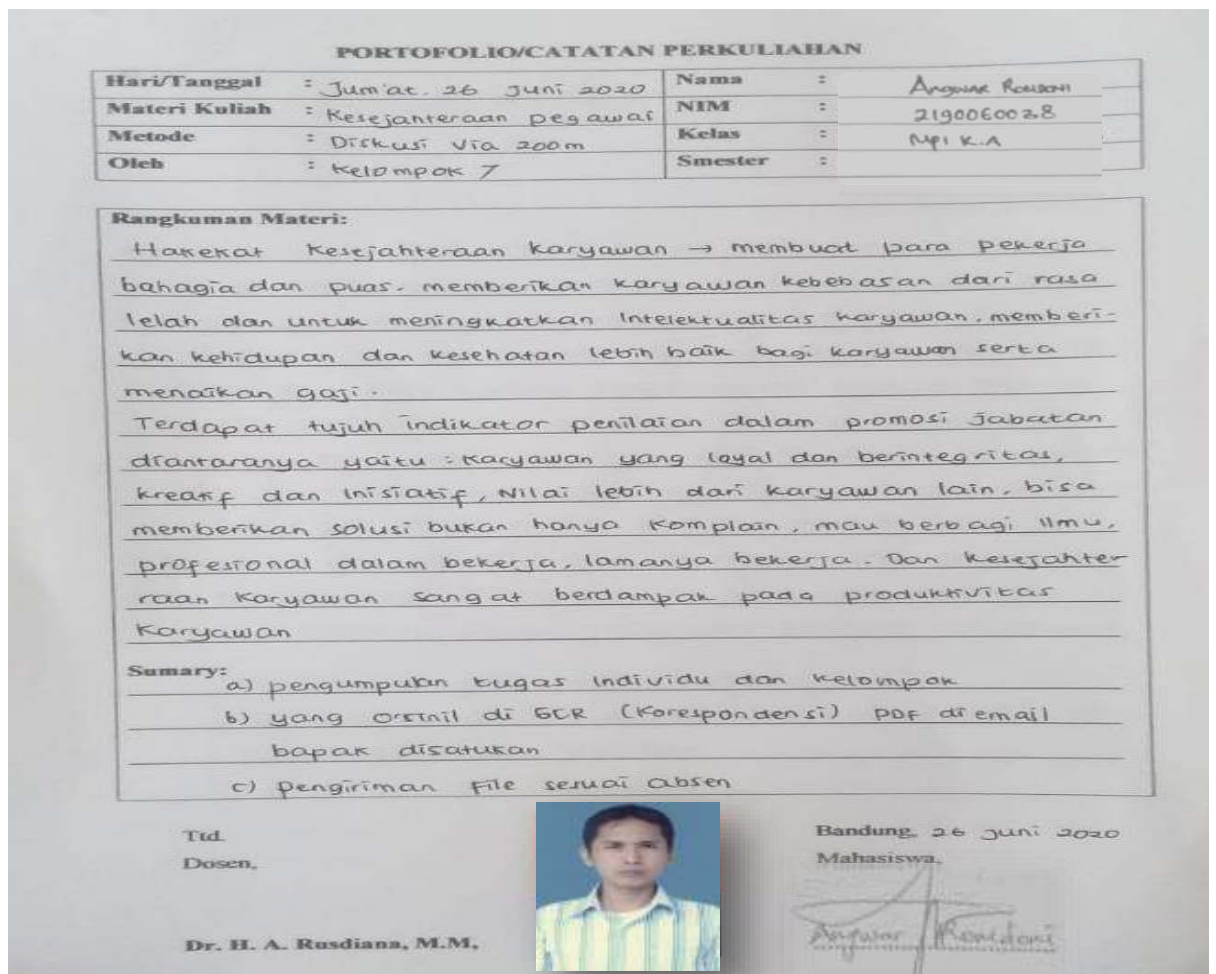 PORTOFOLIO/CATATAN PERKULIAHAN
Hari/Tanggal : Jum'at. 26 Juni 2020 Nama : Angwar Romdoni
Materi Kuliah : Kesejahteraan pegawai NIM : 2190060028
Metode : Diskusi Via zoom Kelas : MPI K.A
Oleh : Kelompok 7 Smester :
Rangkuman Materi:
Hakekat Kesejahteraan Karyawan → membuat para pekerja
bahagia dan puas. memberikan karyawan kebebasan dari rasa
lelah dan untuk meningkatkan Intelektualitas karyawan. memberi-
kan kehidupan dan kesehatan lebih baik bagi karyawan serta
menaikan gaji.
Terdapat tujuh indikator penilaian dalam promosi Jabatan
diantaranya yaitu : Karyawan yang loyal dan berintegritas,
kreatif dan Inisiatif, Nilai lebih dari karyawan lain, bisa
memberikan solusi bukan hanya Komplain, mau berbagi Ilmu,
profesional dalam bekerja, lamanya bekerja. Dan Kesejahter
raan Karyawan sangat berdampak pada produktivitas
Karyawan
Sumary:
a) pengumpulan tugas individu dan kelompok
b) yang orsinil di GCR (Korespondensi) PDF di email
bapak disatukan
c) pengiriman File sesuai absen
Ttd. Bandung, 26 Juni 2020
Dosen, Mahasiswa,
Dr. H. A. Rusdiana, M.M, Angwar Romdoni